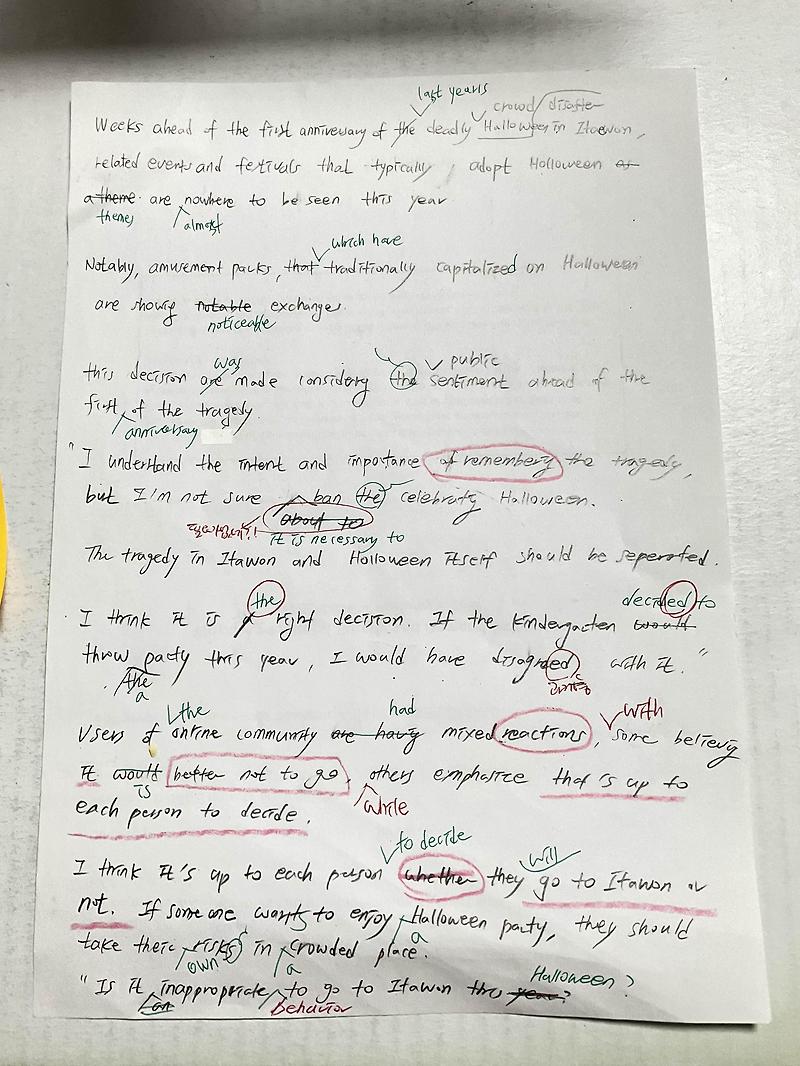 last year's
crowd disaster
Weeks ahead of the first anniversary of the deadly Halloween in Itaewon,
related events and festivals that typically adopt Halloween as
a theme are nowhere to be seen this year
themes almost
which have
Notably, amusement packs, that traditionally capitalized on Halloween
are showig notable exchange.
noticeable
was public
this decision are made considerig the sentiment ahead of the
first of the tragedy.
anniversary
"I understand the intent and importance of rememberig the tragedy,
but I'm not sure ban the celebratig Halloween.
about to
it is necessary to
The tragedy in Itawon and Halloween itself should be seperated.
the decided to
I think it is a right decision. If the kindergarten would
throw party this year, I would have disagreed with it."
the
a
the had with
Users of online community are havig mixed reactions, some believig
it would better not to go, others emphasize that's up to
is while
each person to decide.
to decide will
I think it's up to each person whether they go to Itawon or
not. If someone wants to enjoy Halloween party, they should
a
take their risks in crowded place.
own a
Halloween?
"Is it inappropriate to go to Itawon this year?
an behavior